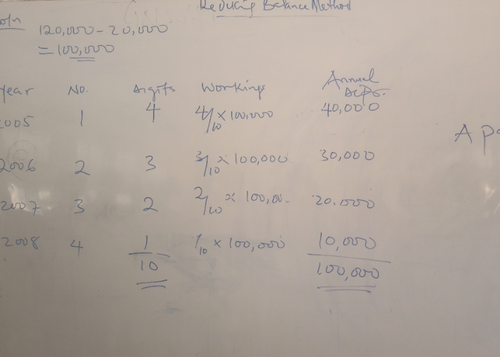 Reducing Balance Method
120,000 - 20,000
= 100,000
Year No. Digits Workings Annual Depr.
2005 1 4 4/10 x 100,000 40,000
2006 2 3 3/10 x 100,000 30,000
2007 3 2 2/10 x 100,00. 20.000
2008 4 1 1/10 x 100,000 10,000
10 100,000